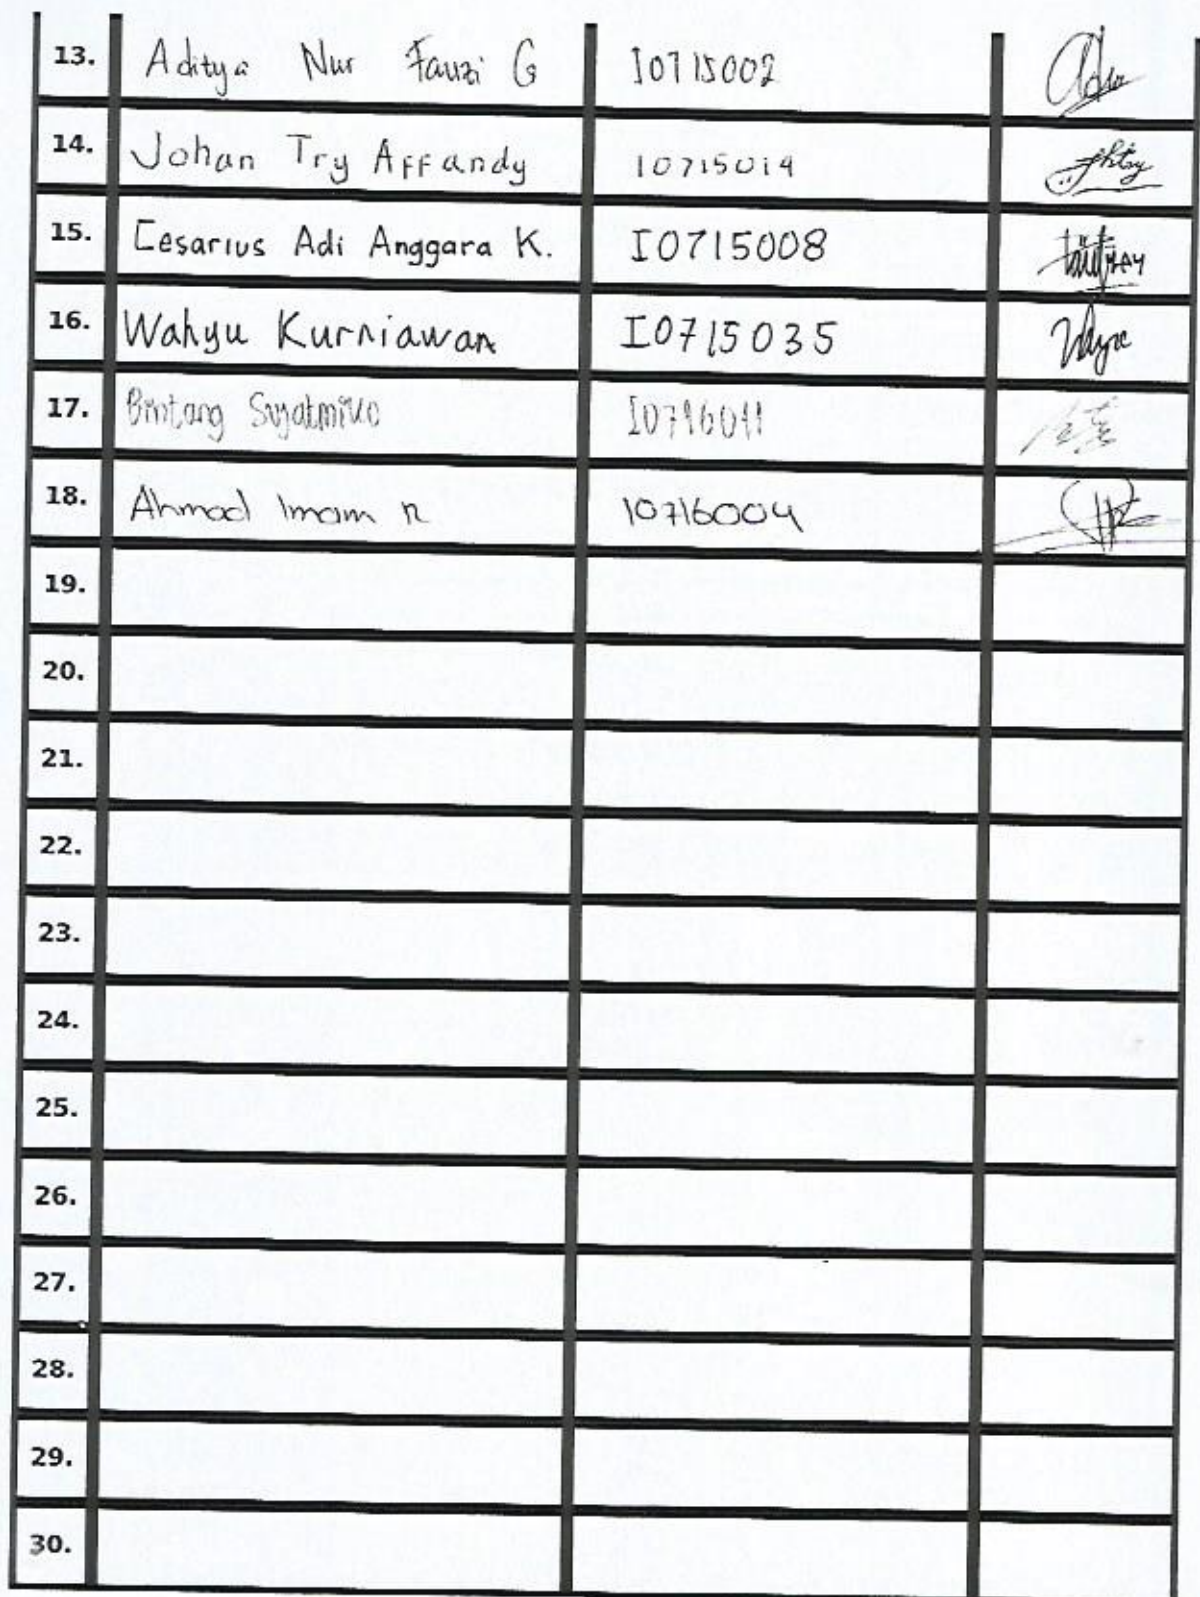 13. Aditya Nur Fauzi G I0715002
14. Johan Try Affandy I0715019
15. Cesarius Adi Anggara K. I0715008
16. Wahyu Kurniawan I0715035
17. Bintang I0716011
18. Ahmad Imam R I0716004
19.
20.
21.
22.
23.
24.
25.
26.
27.
28.
29.
30.